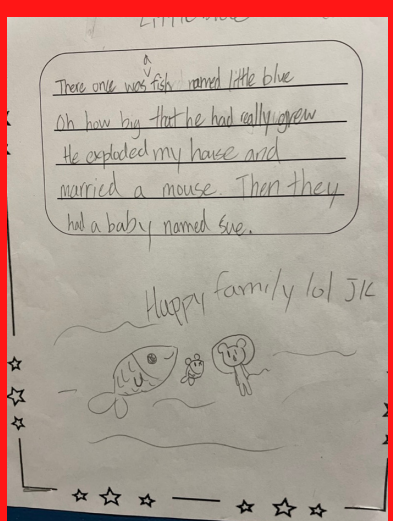 Little blue
a
There once was fish named little blue
Oh how big that he had really grew
He exploded my house and
married a mouse. Then they
had a baby named Sue.
Happy family lol JK